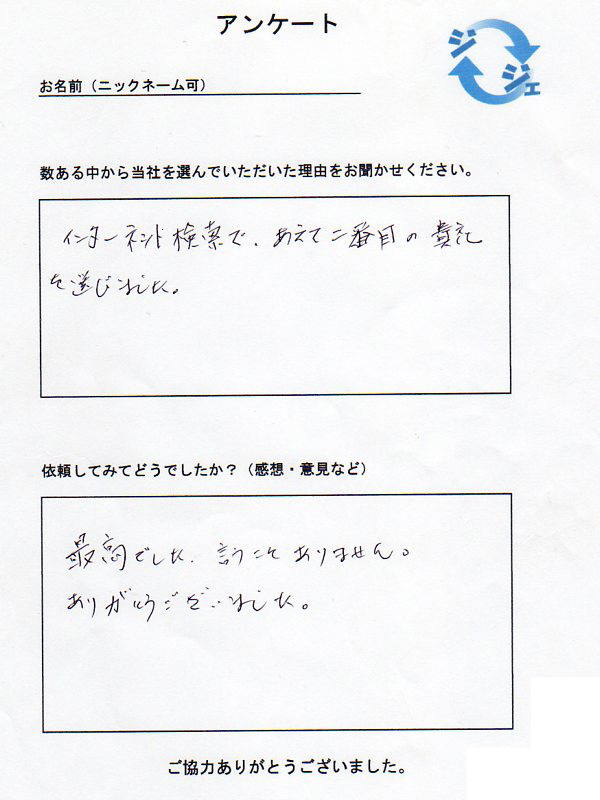 アンケート
ジジェ
お名前（ニックネーム可）
数ある中から当社を選んでいただいた理由をお聞かせください。
インターネット検索で、あえて二番目の貴社
を選びました。
依頼してみてどうでしたか？（感想・意見など）
最高でした、言うことありません。
ありがとうございました。
ご協力ありがとうございました。